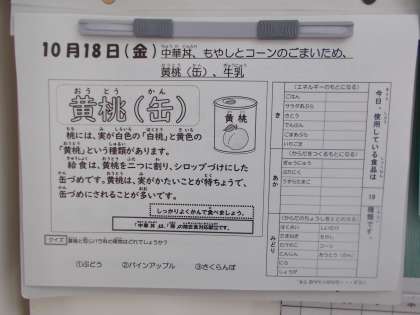 10月18日(金) 中華丼、もやしとコーンのごまいため、
黄桃(缶)、牛乳
おうとう かん
黄桃(缶)
黄桃
桃には、実が白色の「白桃」と黄色の
「黄桃」という種類があります。
給食は、黄桃を二つに割り、シロップづけにした
缶づめです。黄桃は、実がかたいことが特ちょうで、
缶づめにされることが多いです。
しっかりよくかんで食べましょう。
クイズ
①ぶどう ②パインアップル ③さくらんぼ
今日、使用している食品は
19
種類です。
き
(エネルギーのもとになる)
ごはん
サラダあぶら
さとう
でんぷん
ごまあぶら
いりごま
あか
(からだをつくるもとになる)
ぎゅうにゅう
ぶたにく
うずらたまご
みどり
(からだのちょうしをととのえる)
はくさい
たまねぎ
もやし
コーン
にんじん
おうとう(かん)
にら
しょうが